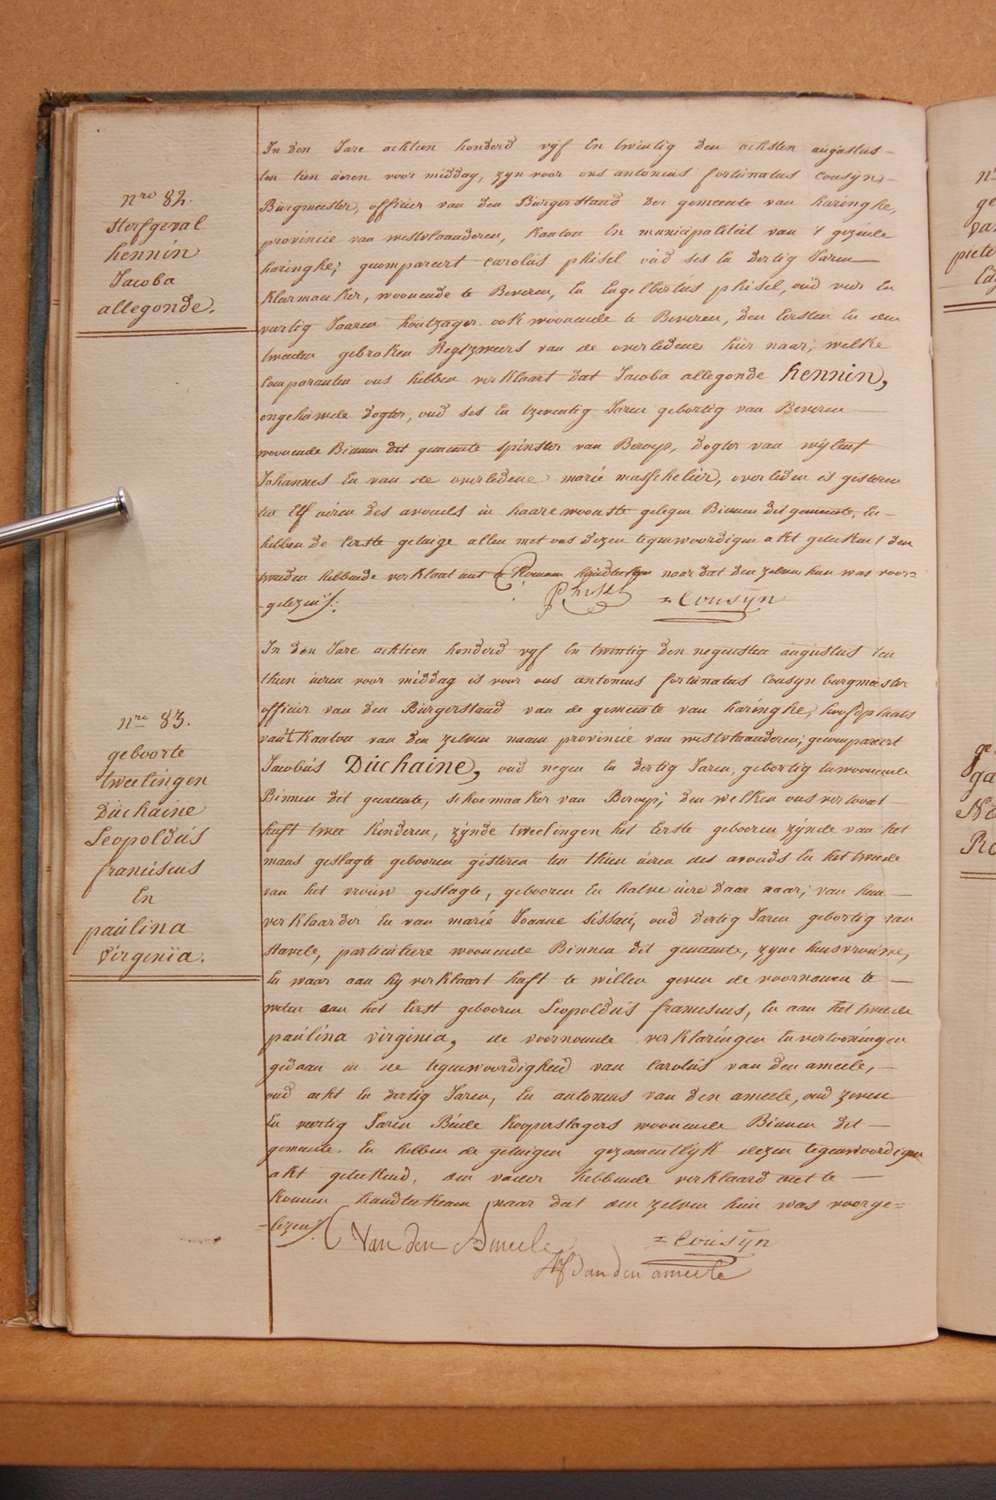 nro 82.
sterfgeval
hennin
Jacoba
allegonde.
In den Jare achtien honderd vyf En twintig den achsten augustus
ten tien üeren voor middag, zyn voor ons antonius fortunatus Cousyn,
Burgmeester, officier van den Burgerstand der gemeente van haringhe,
provincie van westvlaanderen, Kanton En municipaliteit van 't gezeide
haringhe; gecompareert carolus phisel oud ses En dertig Jaren
Klarmaeker, woonende te Beveren, En Engelbertus phisel, oud vier En
veertig Jaaren houtzager ook woonende te Beveren, den Eersten En den
tweeden gebroken Regtzweers van de overledene hier naar; welke
Comparanten ons hebben verklaart dat Jacoba allegonde hennin,
ongehuwde dogter, oud ses En tzeventig Jaren gebortig van Beveren
woonende Binnen dit gemeente spinster van Beroep, dogter van wylent
Johannes En van de overledene marie masschelier, overleden is gisteren
ten Elf üeren des avonds in haare woonste gelegen Binnen dit gemeente, En
hebben de Eerste getuige allen met ons dezen tegenwoordigen akt geteekent den
tweeden hebbende verklaat niet te Konnen handteeken naar dat den zelven hun was voor=
-gelezen/:
Phisel =Cousÿn
nro 83.
geboorte
tweelingen
Düchaine
Leopoldüs
franciscus
En
paülina
virginia.
In den Jare achtien honderd vyf En twintig den negensten augüstus ten
thien üeren voor middag is voor ons antonius fortunatus Cousyn burgmeester
officier van den Bürgerstand van de gemeente van haringhe; hoofdplaats
van't Kanton van den zelven naam provincie van westvlaanderen; gecompareert
Jacobüs Düchaine, oud negen En dertig Jaren, gebortig En woonende
Binnen dit gemeente, schoemaaker van Beroep; den welken ons vertoont
heeft twee Kinderen, zÿnde tweelingen het Eerste gebooren zÿnde van het
mans geslagte gebooren gisteren ten thien üeren des avonds En het tweede
van het vroüw geslagte, gebooren En halve üere daar naar; van hun
verklaarder En van marie Joanne sissaü, oud dertig Jaren gebortig van
Stavele, particüliere woonende Binnen dit gemeente, zyne huisvrouwe,
En waar aan hy verklaart heeft te willen geven de voornamen te
weten aan het Eerst gebooren Leopoldüs franciscus, En aan het tweede
paülina virginia, de voornoemde verklaringen En vertooningen
gedaan in de tegenwoordigheid van Carolüs van den ameele,
oud acht En dertig Jaren, En antonius van den ameele, oud zeven
En veertig Jaren Beide Kooperslagers woonende Binnen dit
gemeente. En hebben de getuigen gezamentlyk dezen tegenwoordigen
akt geteekend, den vader hebbende verklaard niet te
Konnen handteekenen naar dat den zelven hun was voorge=
-lezen/.
Van den Ameele =Cousÿn
AF Van den ameele